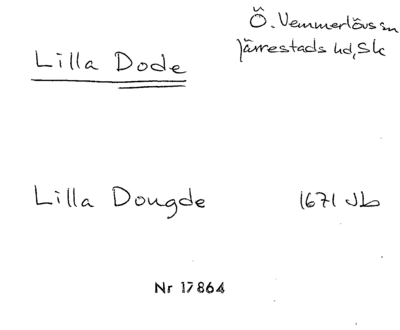 Ö. Vemmerlövs sn
Järrestads hd, Sk
Lilla Dode
Lilla Dougde 1671 Jb
Nr 17864